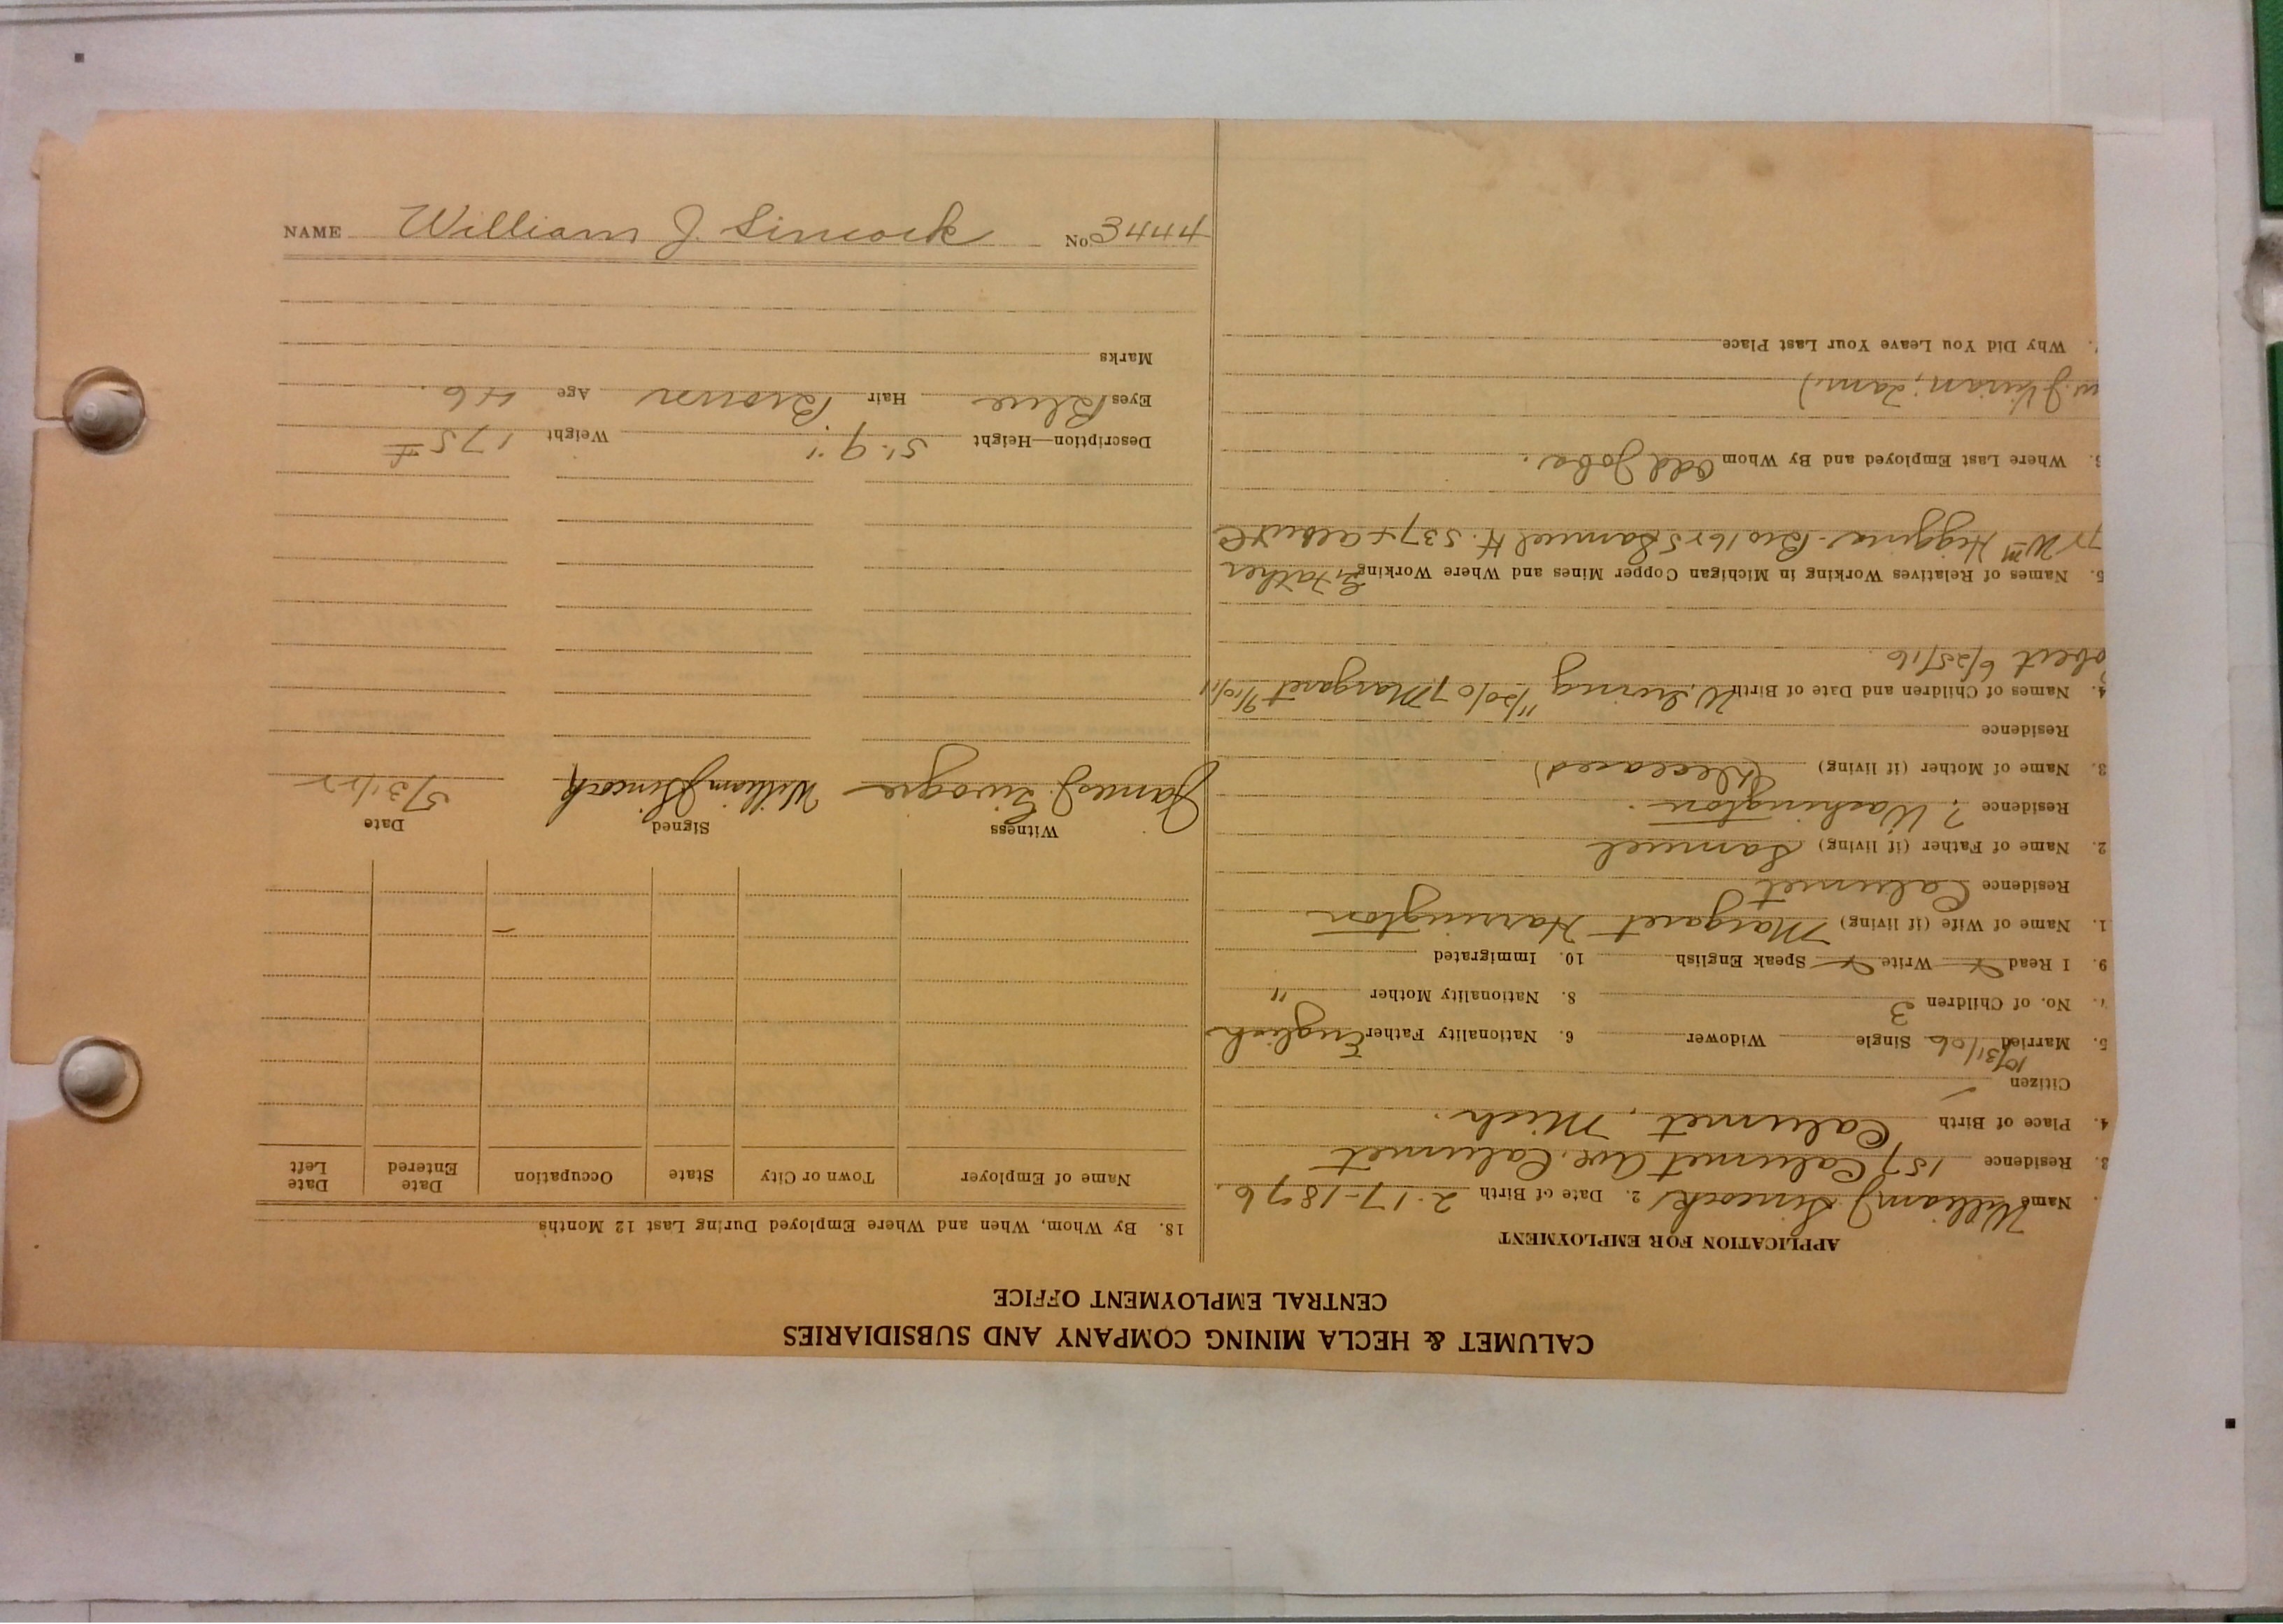 CALUMET & HECLA MINING COMPANY AND SUBSIDIARIES
CENTRAL EMPLOYMENT OFFICE
APPLICATION FOR EMPLOYMENT
Name William J Sincock 2. Date of Birth 2-17-1876.
3. Residence 157 Calumet Ave. Calumet
4. Place of Birth Calumet, Mich.
Citizen ✓
5. Married 10/31/06 Single Widower 6. Nationality Father English
No. of Children 3 8. Nationality Mother "
9. I Read Write Speak English 10. Immigrated
1. Name of Wife (if living) Margaret Harrington
Residence Calumet
2. Name of Father (if living) Samuel
Residence ? Washington.
3. Name of Mother (if living) (Deceased)
Residence
4. Names of Children and Date of Birth W. Irving 11/20/07 Margaret 9/10/11
obert 6/25/16
5. Names of Relatives Working in Michigan Copper Mines and Where Working Father
Wm Higgins - Bro 16 & 5 Samuel H. 537 & Albert
6. Where Last Employed and By Whom Odd Jobs.
Why Did You Leave Your Last Place
18. By Whom, When and Where Employed During Last 12 Months
Name of Employer Town or City State Occupation Date Entered Date Left
Witness Signed Date
James J. William J Sincock 5/31/22
Description—Height 5'. 9" Weight 175 #
Eyes Blue Hair Brown Age 46.
Marks
NAME William J. Sincock No. 3444